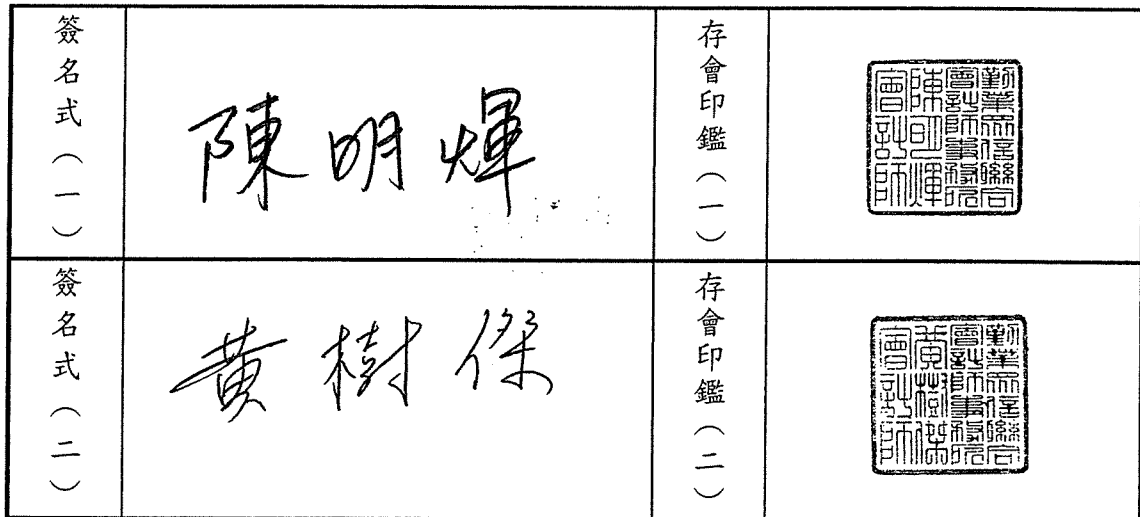 簽名式（一）
陳明煇
存會印鑑（一）
勤業眾信聯合
會計師事務所
陳明煇
會計師
簽名式（二）
黃樹傑
存會印鑑（二）
勤業眾信聯合
會計師事務所
黃樹傑
會計師